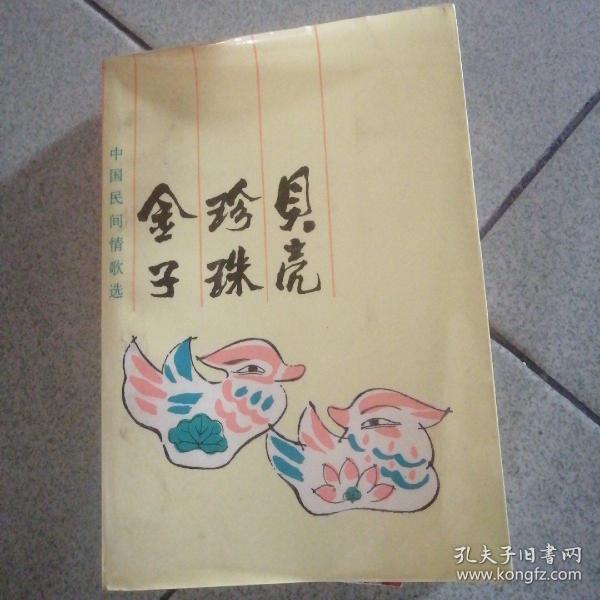 贝壳
珍珠
金子
中国民间情歌选
孔夫子旧書网
www.kongfz.com